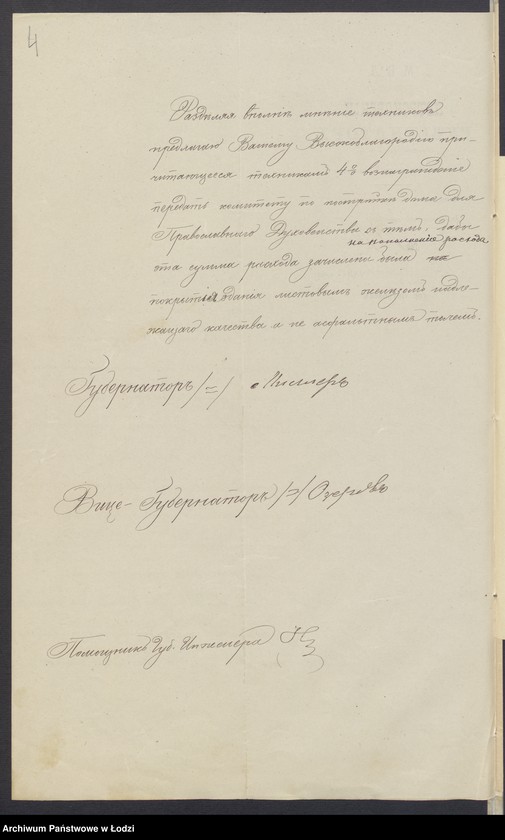 4
Раздѣляя вполнѣ мнѣніе техниковъ
предлагаю Вашему Высокоблагородію при-
читающееся техникамъ 4% вознагражденіе
передать комитету по постройкѣ дома для
Православнаго Духовенства съ тѣмъ, дабы
на пополненіе расхода
эта сумма расхода зачислена была на
покрытіе зданія листовымъ желѣзомъ надле-
жащаго качества а не асфальтнымъ толемъ.
Губернаторъ /=/ Миллеръ
Вице-Губернаторъ /=/ Озеровъ
Помощникъ Губ. Инженера
Archiwum Państwowe w Łodzi